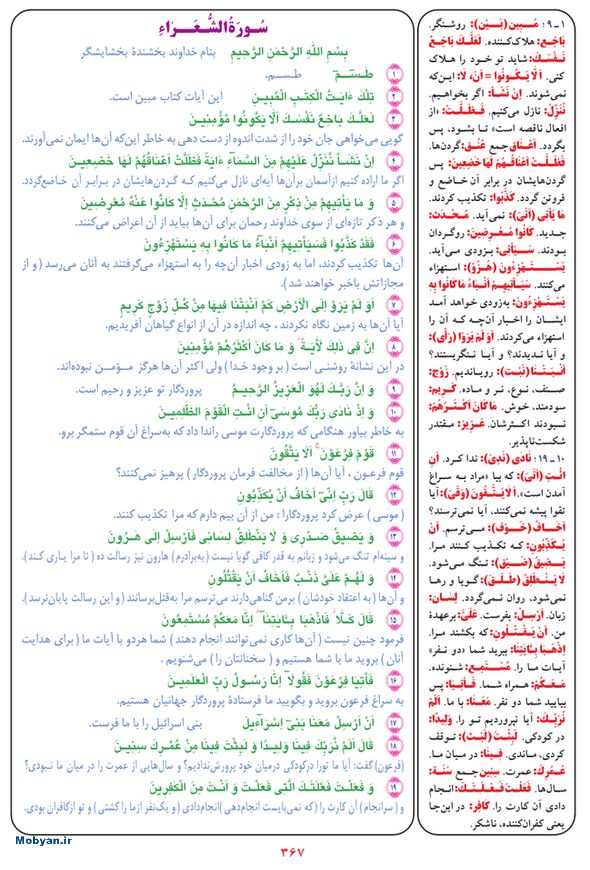 سُورَةُ الشُّعَرَاءِ
بِسْمِ اللّٰهِ الرَّحْمٰنِ الرَّحِيمِ بنام خداوند بخشندهٔ بخشایشگر
۱ طٰسٓمٓ طـسـم.
۲ تِلْكَ ءَايٰتُ الْكِتٰبِ الْمُبِينِ این آیات کتاب مبین است.
۳ لَعَلَّكَ بَاخِعٌ نَفْسَكَ اَلَّا يَكُونُوا مُؤْمِنِينَ
گویی می‌خواهی جان خود را از شدت اندوه از دست دهی به خاطر این‌که آن‌ها ایمان نمی‌آورند.
۴ اِنْ نَشَأْ نُنَزِّلْ عَلَيْهِمْ مِنَ السَّمَاءِ ءَايَةً فَظَلَّتْ اَعْنَاقُهُمْ لَهَا خٰضِعِينَ
اگر ما اراده کنیم ازآسمان برآن‌ها آیه‌ای نازل می‌کنیم که گردن‌هایشان در برابر آن خاضع‌گردد.
۵ وَ مَا يَأْتِيهِمْ مِنْ ذِكْرٍ مِنَ الرَّحْمٰنِ مُحْدَثٍ اِلَّا كَانُوا عَنْهُ مُعْرِضِينَ
و هر ذکر تازه‌ای از سوی خداوند رحمان برای آن‌ها بیاید از آن اعراض می‌کنند.
۶ فَقَدْ كَذَّبُوا فَسَيَأْتِيهِمْ اَنْبَاءُ مَا كَانُوا بِهِ يَسْتَهْزِءُونَ
آن‌ها تکذیب کردند، اما به زودی اخبار آن‌چه را به استهزاء می‌گرفتند به آنان می‌رسد ( و از
مجازاتش باخبر خواهند شد ).
۷ اَوَ لَمْ يَرَوْا اِلَى الْاَرْضِ كَمْ اَنْبَتْنَا فِيهَا مِنْ كُلِّ زَوْجٍ كَرِيمٍ
آیا آن‌ها به زمین نگاه نکردند ، چه اندازه در آن از انواع گیاهان آفریدیم.
۸ اِنَّ فِي ذٰلِكَ لَاٰيَةً وَ مَا كَانَ اَكْثَرُهُمْ مُؤْمِنِينَ
در این نشانهٔ روشنی است ( بر وجود خدا ) ولی اکثر آن‌ها هرگز مؤمن نبوده‌اند.
۹ وَ اِنَّ رَبَّكَ لَهُوَ الْعَزِيزُ الرَّحِيمُ پروردگار تو عزیز و رحیم است.
۱۰ وَ اِذْ نَادٰى رَبُّكَ مُوسٰى اَنِ ائْتِ الْقَوْمَ الظّٰلِمِينَ
به خاطر بیاور هنگامی که پروردگارت موسی راندا داد که به‌سراغ آن قوم ستمگر برو.
۱۱ قَوْمَ فِرْعَوْنَ اَلَا يَتَّقُونَ
قوم فرعـون ، آیا آن‌ها ( از مخالفت فرمان پروردگار ) پرهیز نمی‌کنند؟
۱۲ قَالَ رَبِّ اِنِّي اَخَافُ اَنْ يُكَذِّبُونِ
( موسی ) عرض کرد پروردگارا : من از آن بیم دارم که مرا تکذیب کنند.
۱۳ وَ يَضِيقُ صَدْرِي وَ لَا يَنْطَلِقُ لِسَانِي فَاَرْسِلْ اِلٰى هٰرُونَ
و سینه‌ام تنگ می‌شود و زبانم به قدر کافی گویا نیست (به‌برادرم) هارون نیز رسالت ده ( تا مرا یـاری کنـد).
۱۴ وَ لَهُمْ عَلَيَّ ذَنْبٌ فَاَخَافُ اَنْ يَقْتُلُونِ
و آن‌ها ( به اعتقاد خودشان ) برمن گناهی‌دارند می‌ترسم مرا به‌قتل‌برسانند ( و این رسالت پایان‌نرسد).
۱۵ قَالَ كَلَّا فَاذْهَبَا بِـَٔايٰتِنَا اِنَّا مَعَكُمْ مُسْتَمِعُونَ
فرمود چنین نیست ( آن‌ها کاری نمی‌توانند انجام دهند ) شما هردو با آیات ما ( برای هدایت
آنان ) بروید ما با شما هستیم و ( سخنانتان را ) می‌شنویم .
۱۶ فَأْتِيَا فِرْعَوْنَ فَقُولَا اِنَّا رَسُولُ رَبِّ الْعٰلَمِينَ
به سراغ فرعون بروید و بگویید ما فرستادهٔ پروردگار جهانیان هستیم.
۱۷ اَنْ اَرْسِلْ مَعَنَا بَنِي اِسْرٰءِيلَ بنی اسرائیل را با ما فرست.
۱۸ قَالَ اَلَمْ نُرَبِّكَ فِينَا وَلِيدًا وَ لَبِثْتَ فِينَا مِنْ عُمُرِكَ سِنِينَ
(فرعون) گفت: آیا ما تورا درکودکی درمیان خود پرورش‌ندادیم؟ و سال‌هایی از عمرت را در میان ما نبودی؟
۱۹ وَ فَعَلْتَ فَعْلَتَكَ الَّتِي فَعَلْتَ وَ اَنْتَ مِنَ الْكٰفِرِينَ
و (سرانجام) آن کارت را (که نمی‌بایست انجام‌دهی)انجام‌دادی (و یک‌نفر ازما را کشتی) و تو ازکافران بودی.
۱-۹: مُبِين (بَيْن): روشنگر.
بَاخِع: هلاک‌کننده. لَعَلَّكَ بَاخِعٌ
نَفْسَكَ: شاید تو خود را هلاک
کنی. اَلَّا يَكُونُوا = اَنْ، لَا: این‌که
نمی‌شوند. اِنْ نَشَأْ: اگر بخواهیم.
نُنَزِّلْ: نازل می‌کنیم. فَظَلَّتْ: «از
افعال ناقصه است» تا بشود، پس
بگردد. اَعْنَاق جمع عُنُق: گردن‌ها.
فَظَلَّتْ اَعْنَاقُهُمْ لَهَا خٰضِعِينَ: پس
گردن‌هایشان در برابر آن خاضع و
فروتن گردد. كَذَّبُوا: تکذیب کردند.
مَا يَأْتِي (اَتَىٰ): نمی‌آید. مُحْدَث:
جدید. كَانُوا مُعْرِضِينَ: روگردان
بودند. سَيَأْتِي: بزودی می‌آید.
يَسْتَهْزِءُونَ (هُزْو): استهزاء
می‌کنند. سَيَأْتِيهِمْ اَنْبَاءُ مَا كَانُوا بِهِ
يَسْتَهْزِءُونَ: به‌زودی خواهد آمد
ایشان را اخبار آن‌چه که آن را
استهزاء می‌کردند. اَوَ لَمْ يَرَوْا (رَأْی):
و آیا ندیدند؟ و آیا نـنگریستند؟
اَنْبَتْنَا (نَبْت): رویاندیم. زَوْج:
صنف، نوع، نر و ماده. كَرِيم:
سودمند، خوش. مَا كَانَ اَكْثَرُهُمْ:
نبودند اکثرشان. عَزِيز: مقتدر
شکست‌ناپذیر.
۱۰-۱۹: نَادٰى (نَدْي): ندا کرد. اَنِ
ائْتِ (اَتَىٰ): که بیا «مراد به سراغ
آمدن است». اَلَا يَتَّقُونَ (وَقَى): آیا
تقوا پیشه نمی‌کنند، آیا نمی‌ترسند؟
اَخَافُ (خَوْف): می‌ترسم. اَنْ
يُكَذِّبُونِ: که تکذیب کنند مرا.
يَضِيقُ (ضَيْق): تنگ می‌شود.
لَا يَنْطَلِقُ (طَلْق): گویا و رها
نمی‌شود، روان نمی‌گردد. لِسَان:
زبان. اَرْسِلْ: بفرست. عَلَيَّ: برعهدهٔ
من. اَنْ يَقْتُلُونِ: که بکشند مرا.
اِذْهَبَا بِـَٔايٰتِنَا: ببرید شما «دو نفر»
آیات ما را. مُسْتَمِع: شنونده.
مَعَكُمْ: همراه شما. فَأْتِيَا: پس
بیایید شما دو نفر. مَعَنَا: با ما. اَلَمْ
نُرَبِّكَ: آیا نپروردیم تو را. وَلِيدًا:
در کودکی. لَبِثْتَ (لَبْث): توقف
کردی، ماندی. فِينَا: در میان ما.
عُمُرِكَ: عمرت. سِنِين جمع سَنَة:
سال‌ها. فَعَلْتَ فَعْلَتَكَ: انجام
دادی آن کارت را. كَافِر: در این‌جا
یعنی کفران‌کننده، ناشکر.
۳۶۷
Mobyan.ir